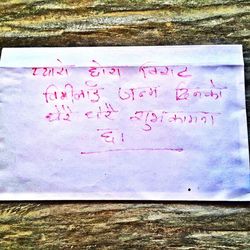 प्यारो छोरा विराट
तिमीलाई जन्म दिनको
धेरै धेरै शुभकामना
छ।